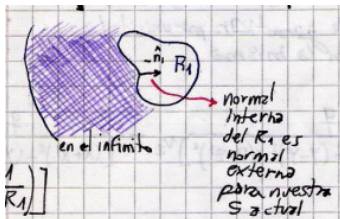 -n̂₁ R₁
normal
interna
del R₁ es
normal
externa
para nuestra
S actual
en el infinito
1
R₁)]